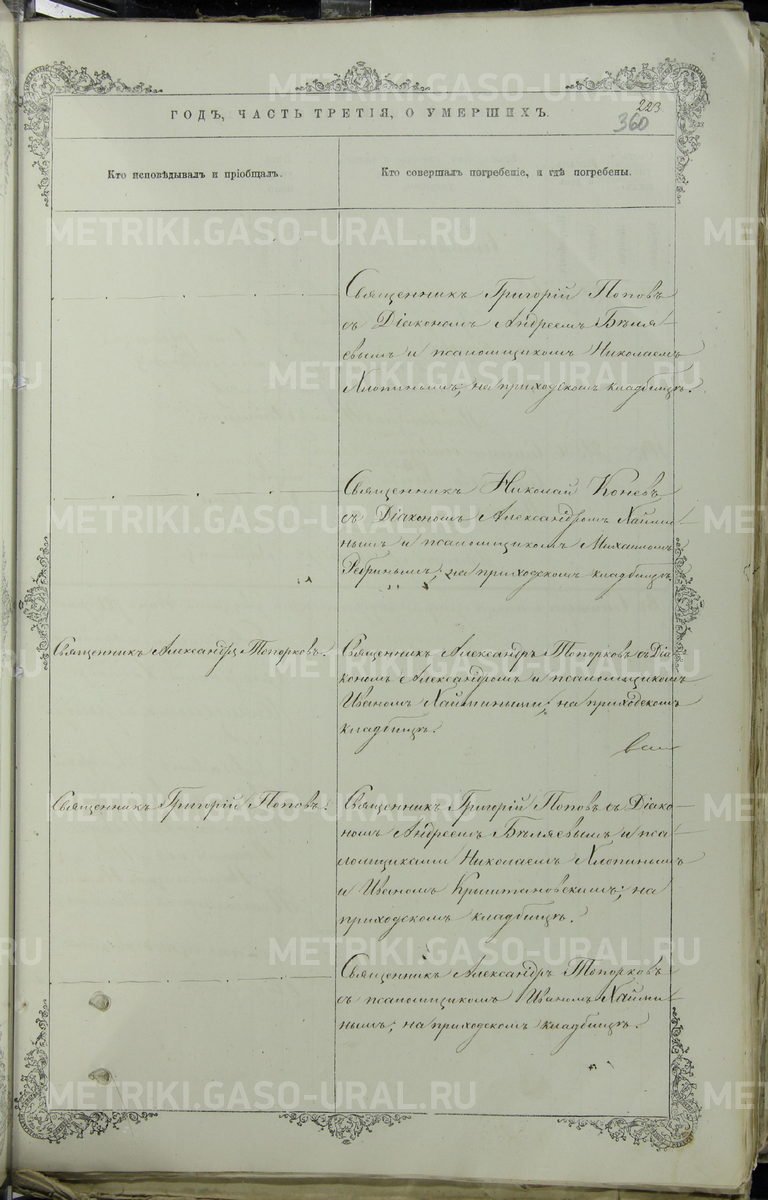 223
ГОДЪ, ЧАСТЬ ТРЕТІЯ, О УМЕРШИХЪ.
360
Кто исповѣдывалъ и пріобщалъ.
Кто совершалъ погребеніе, и гдѣ погребены.
Священникъ Григорій Поповъ
съ Діакономъ Андреемъ Бѣля-
евымъ и псаломщикомъ Николаемъ
Хлопинымъ; на приходскомъ кладбищѣ.
Священникъ Николай Коневъ
съ Діакономъ Александромъ
нымъ и псаломщикомъ Михаиломъ
Ребринымъ; на приходскомъ кладбищѣ.
Священникъ Александръ Топорковъ.
Священникъ Александръ Топорковъ съ Діа-
кономъ Александромъ и псаломщикомъ
Иваномъ на приходскомъ
кладбищѣ.
Священникъ Григорій Поповъ.
Священникъ Григорій Поповъ съ Діако-
номъ Андреемъ Бѣляевымъ и пса-
ломщиками Николаемъ Хлопинымъ
и Иваномъ Крыштановскимъ; на
приходскомъ кладбищѣ.
Священникъ Александръ Топорковъ
съ псаломщикомъ Иваномъ
нымъ; на приходскомъ кладбищѣ.
METRIKI.GASO-URAL.RU